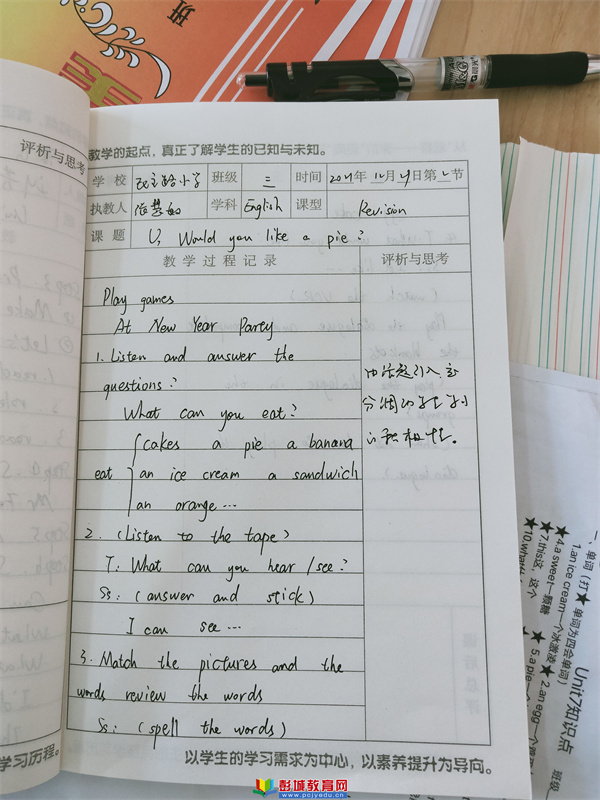 班
评析与思考
教学的起点，真正了解学生的已知与未知。
学校 民主路小学 班级 三 时间 年12月 日第 节
执教人 学科 English 课型 Revision
课题 U7 Would you like a pie?
教学过程记录 评析与思考
Play games
At New Year Party
1. Listen and answer the
questions?
What can you eat?
cakes a pie a banana
eat an ice cream a sandwich
an orange...
2. (Listen to the tape)
T: What can you hear / see?
Ss: (answer and stick)
I can see...
3. Match the pictures and the
words review the words
Ss: (spell the words)
分
积极性。
学习历程。
以学生的学习需求为中心，以素养提升为导向。
Unit7知识点
班级
一、单词(打★单词为四会单词)
1.an ice cream一个冰激凌
★2.an egg一个
★4.a sweet一颗糖
★5.a pie一个
★7.this这，这个
★10.what
彭城教育网
www.pcjyedu.com